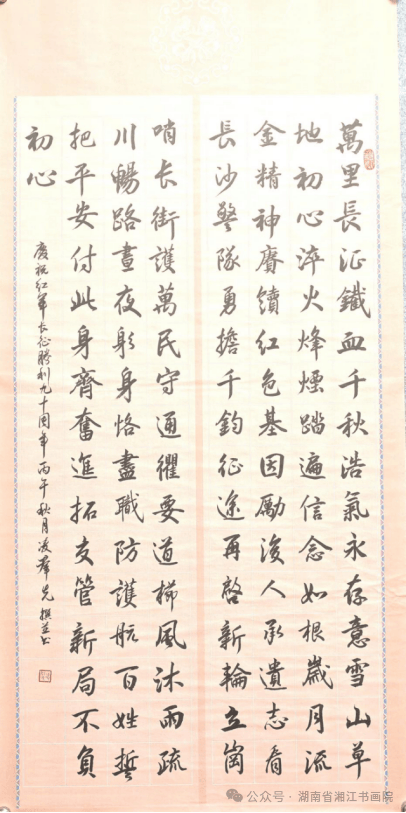 萬里長征鐵血千秋浩氣永存意雪山草
地初心淬火烽煙踏遍信念如根歲月流
金精神賡續紅色基因勵後人承遺志看
長沙警隊勇擔千鈞征途再啓新輪立崗
哨長街護萬民守通衢要道櫛風沐雨疏
川暢路晝夜躬身恪盡職防護航百姓誓
把平安付此身齊奮進拓交管新局不負
初心
慶祝紅軍長征勝利九十周年丙午秋月凌群兄撰並書
公众号 · 湖南省湘江书画院